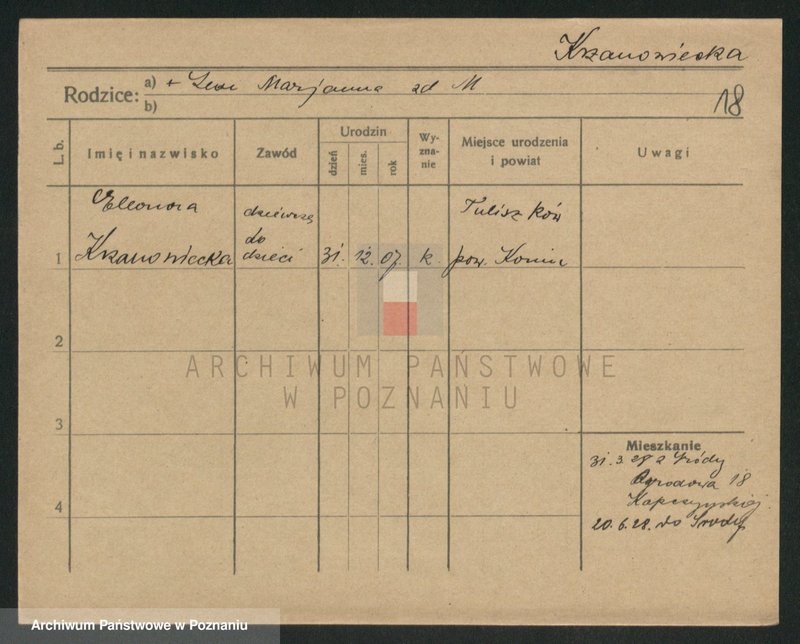 Krzanowiecka
Rodzice: a) + Marjanna zd M
b)
18
L. b.
Imię i nazwisko
Zawód
Urodzin
dzień
mies.
rok
Wy-
zna-
nie
Miejsce urodzenia
i powiat
Uwagi
1
Eleonora
Krzanowiecka
do
dzieci
31. 12. 07. k.
Tuliszków
pow. Konin
2
ARCHIWUM PAŃSTWOWE
W POZNANIU
3
4
Mieszkanie
31. 3. 28 z Środy
Ogrodowa 18
20. 6. 28. do Środy
Archiwum Państwowe w Poznaniu